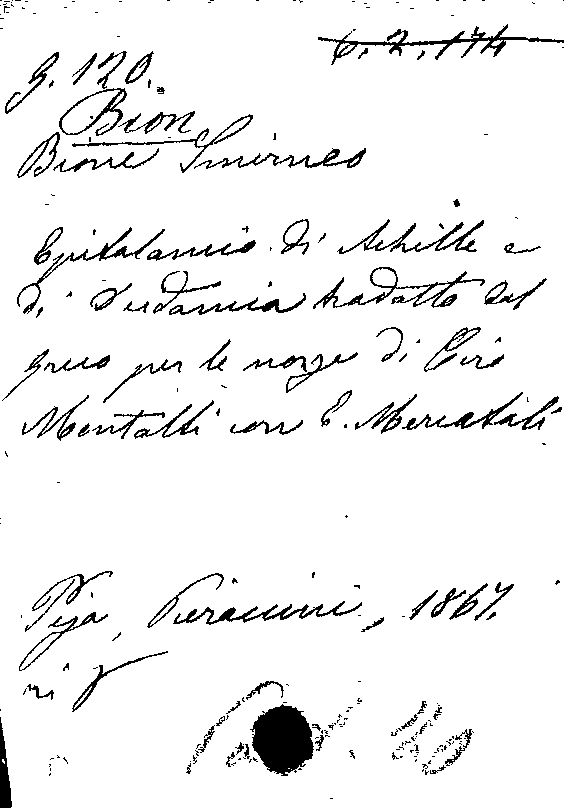 6.2.174
G. 120.
Bion
Bione Smirneo
Epitalamio di Achille e
di Deidamia tradotto dal
greco per le nozze di Ciro
Montalti con E. Mercatali
Pisa, Pieraccini, 1867.
in 8